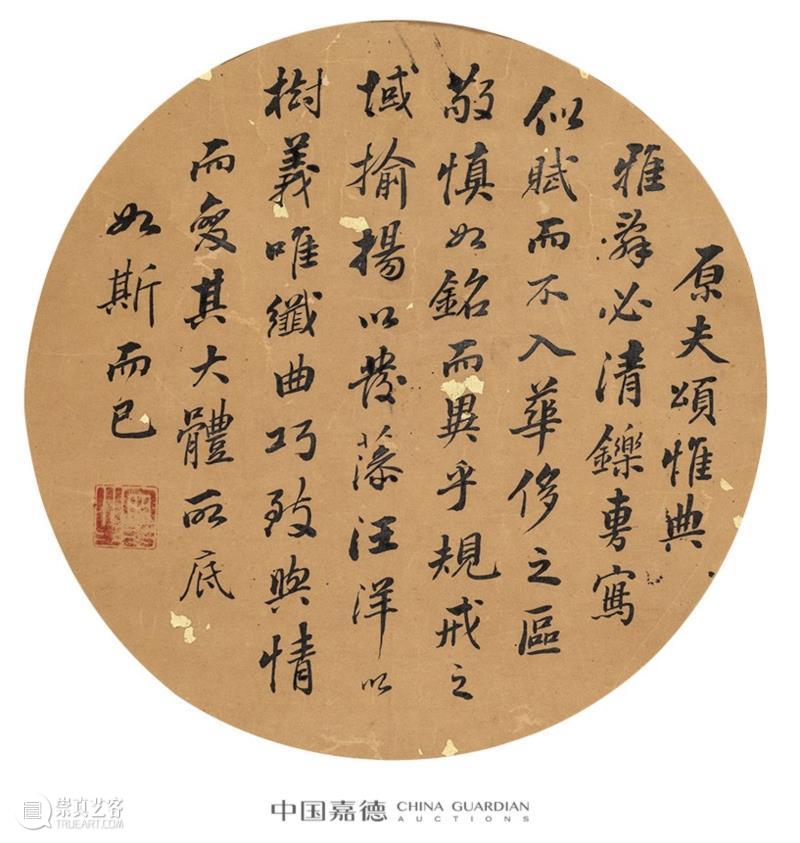 原夫頌惟典
雅辭必清鑠旉寫
似賦而不入華侈之區
敬慎如銘而異乎規戒之
域揄揚以發藻汪洋以
樹義唯纖曲巧致與情
而變其大體所底
如斯而已
中国嘉德 CHINA GUARDIAN
AUCTIONS
崇真艺客
TRUEART.COM